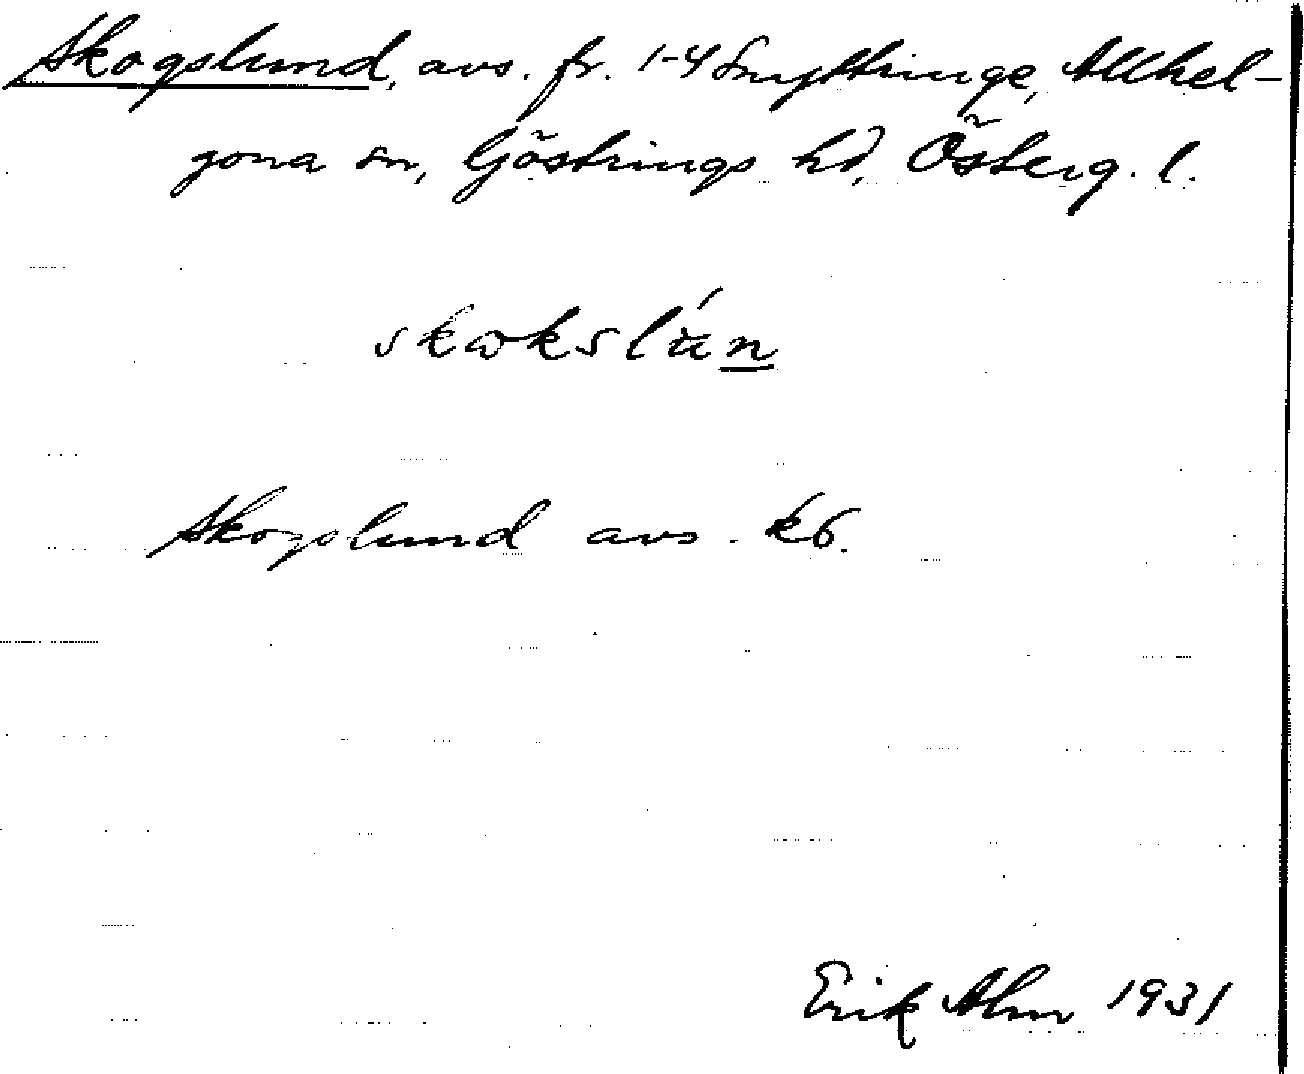 Skogslund, avs. fr. 1-4 Snyttringe, Allhel-
gona sn, Göstrings hd, Österg. l.
skωkslún
Skogslund avs. kb.
Erik Alm 1931